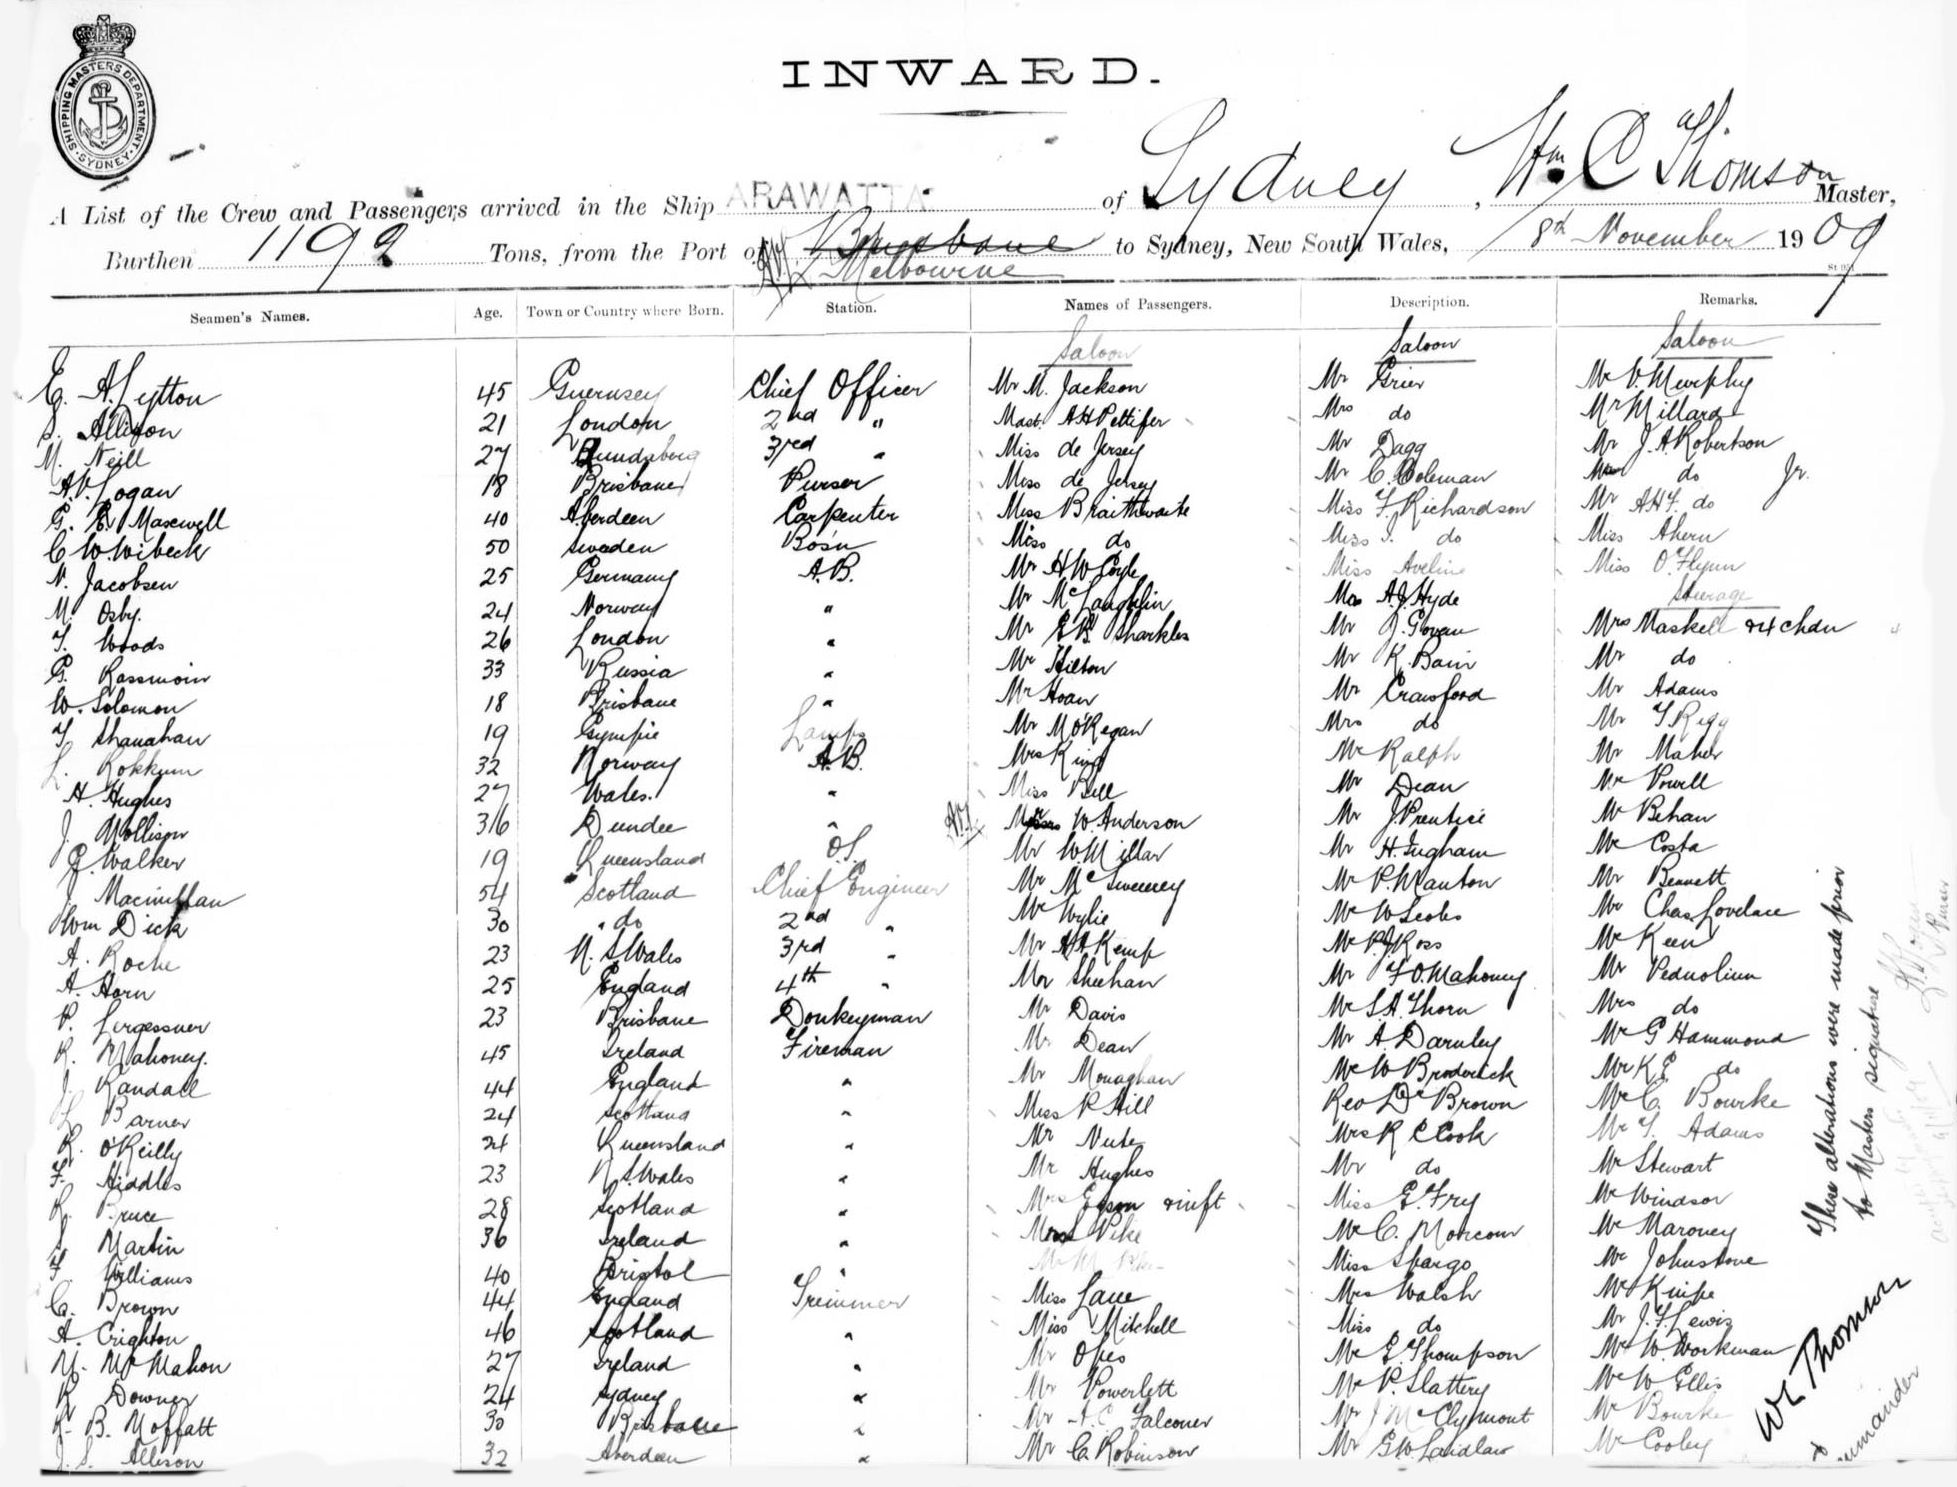 SHIPPING MASTERS DEPARTMENT.
SYDNEY
INWARD.
A List of the Crew and Passengers arrived in the Ship ARAWATTA of Sydney, Wm C Thomson Master,
Burthen 1192 Tons, from the Port of Brisbane to Sydney, New South Wales, 8th November 1909
Melbourne
Seamen's Names. Age. Town or Country where Born. Station. Names of Passengers. Description. Remarks.
Saloon Saloon Saloon
E. A. Lytton 45 Guernsey Chief Officer Mr M. Jackson Mr Grier Mr V. Murphy
S. Allison 21 London 2nd " Mast. A H Pettifer Mrs do Mr Millard
M. Neill 27 Bundaberg 3rd " Miss de Jersey Mr Dagg Mr J. A. Robertson
A. V. Logan 18 Brisbane Purser Miss de Jersey Mr C. Coleman do Jr.
G. E. Maxwell 40 Aberdeen Carpenter Miss Braithwaite Miss F. Richardson Mr A H F. do
C W. Wibeck 50 Sweden Bos'n Miss do Miss I. do Miss Ahern
N. Jacobsen 25 Germany A.B. Mr H W Miss Aveline Miss O'Flynn
M. Osby. 24 Norway " Mr McLaughlin A J Hyde Steerage
T. Woods 26 London " Mr Sharkles Mr J. Mrs Maskell & 4 chdn
G. Rassmoin 33 Russia " Mr Hilton Mr K. Bain Mr do
W. Solomon 18 Brisbane " Mr Hoan Mr Crawford Mr Adams
T. Shanahan 19 Gympie Lamps Mr M O'Regan Mrs do Mr T Rigg
L. Rokkum 32 Norway A.B. Mrs King Mr Ralph Mr Maher
H. Hughes 27 Wales. " Miss Bell Mr Dean Mr Powell
J. Mollison 36 Dundee " W Anderson Mr J Prentice Mr Behan
G. Walker 19 Queensland O.S. Mr W. Millar Mr H. Ingham Mr Costa
J. Macmillan 54 Scotland Chief Engineer Mr McSweeney Mr P. Manton Mr Bennett
Wm Dick 30 " do 2nd " Mr Wylie Mr W Mr Chas Lovelace
A. Roche 23 N. S Wales 3rd " Mr A H Kemp Mr P. J Ross Mr Keen
A. Horn 25 England 4th " Mr Sheehan Mr F O. Mahoney Mr
P. 23 Brisbane Donkeyman Mr Davis Mr S. A. Thorn Mrs do
R. Mahoney. 45 Ireland Fireman Mr Dean Mr A Darnley Mr G Hammond
J. Randall 44 England " Mr Monaghan Mr W Broderick Mr K E do
L. Barner 24 Scotland " Miss R Hill Rev Dr Brown Mr C. Bourke
R. O'Reilly 24 Queensland " Mr Nute Mrs R C Cook Mr T. Adams
F. Hiddles 23 N. S. Wales " Mr Hughes Mr do Mr Stewart
R. Bruce 28 Scotland " Mrs & inft Miss E. Fry Mr Windsor
J. Martin 36 Ireland " Pike Mr C. Morcom Mr Maroney
F. Williams 40 Bristol " Miss Spargo Mr Johnstone
C. Brown 44 England Trimmer Miss Lane Mrs Walsh Mr Knipe
A. Crighton 46 Scotland " Miss Mitchell Miss do Mr J. F. Lewis
M. McMahon 27 Ireland " Mr Opes Mr E. Thompson Mr W. Workman
R. Downer 24 Sydney " Mr Powerlett Mr P. Slattery Mr W Ellis
R. B. Moffatt 30 Brisbane " Mr A. C Falconer Mr J McClymont Mr Bourke
J. S. Allison 32 Aberdeen " Mr C. Robinson Mr G. W. Laidlaw Mr Cooley
These alterations were made prior
to Masters signature
Purser
W C Thomson